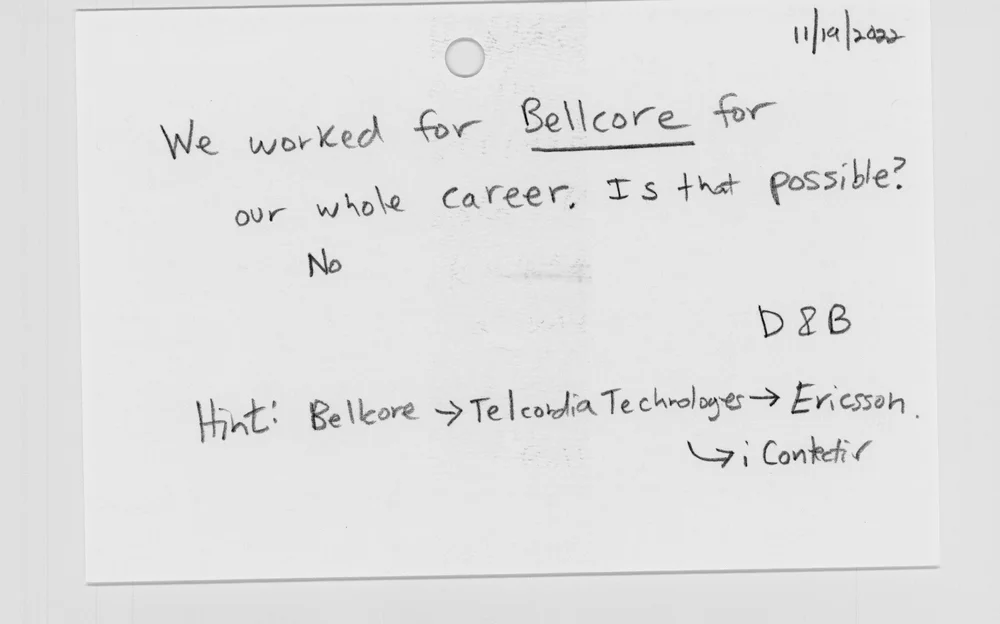 11/19/2022
We worked for Bellcore for
our whole career. Is that possible?
No
D & B
Hint: Bellcore → Telcordia Technologies → Ericsson.
↳ iConectiv